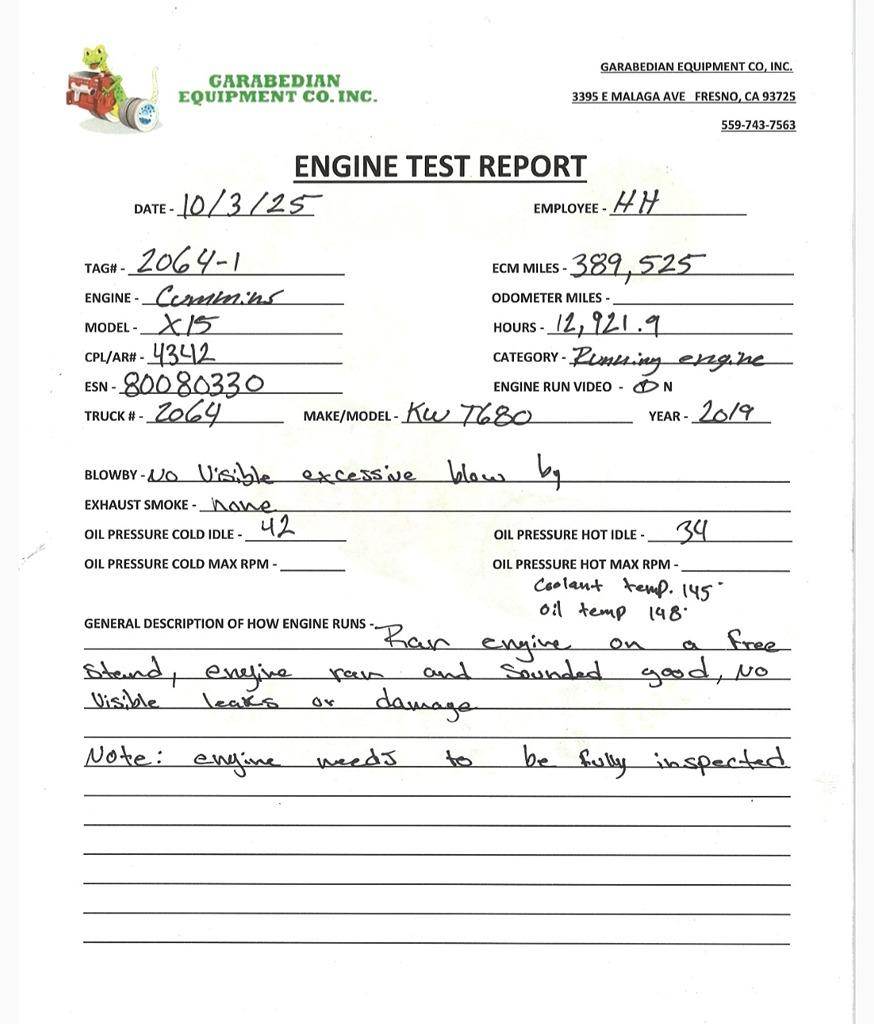 GARABEDIAN
EQUIPMENT CO. INC.
GARABEDIAN EQUIPMENT CO, INC.
3395 E MALAGA AVE FRESNO, CA 93725
559-743-7563
ENGINE TEST REPORT
DATE - 10/3/25 EMPLOYEE - HH
TAG# - 2064-1 ECM MILES - 389,525
ENGINE - Cummins ODOMETER MILES -
MODEL - X15 HOURS - 12,921.9
CPL/AR# - 4342 CATEGORY - Running engine
ESN - 80080330 ENGINE RUN VIDEO - Y N
TRUCK # - 2064 MAKE/MODEL - KW T680 YEAR - 2019
BLOWBY - No Visible excessive blow by
EXHAUST SMOKE - none
OIL PRESSURE COLD IDLE - 42 OIL PRESSURE HOT IDLE - 34
OIL PRESSURE COLD MAX RPM - OIL PRESSURE HOT MAX RPM -
Coolant temp. 145°
Oil temp 148°
GENERAL DESCRIPTION OF HOW ENGINE RUNS - Ran engine on a free
stand, engine ran and sounded good, No
Visible leaks or damage
Note: engine needs to be fully inspected